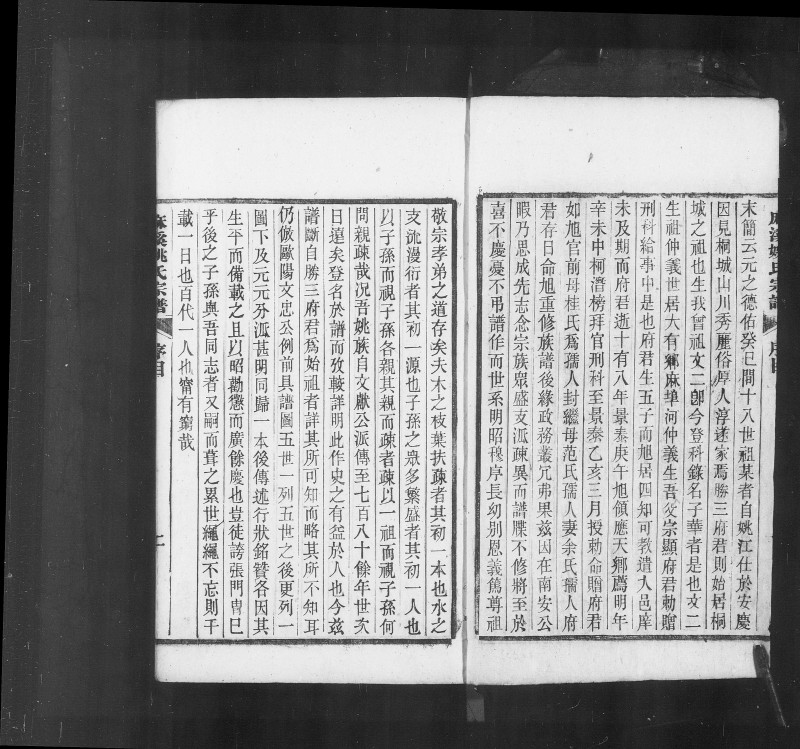 末簡云元之德佑癸巳間十八世祖某者自姚江仕於安慶
因見桐城山川秀麗俗厚人淳遂家焉勝三府君則始居桐
城之祖也生我曾祖文二卽今登科錄名子華者是也文二
生祖仲義世居大有鄉麻埠河仲義生吾父宗顯府君勅贈
刑科給事中是也府君生五子而旭居四知可教遣入邑庠
未及期而府君逝十有八年景泰庚午旭領應天鄉薦明年
辛未中柯潛榜拜官刑科至景泰乙亥三月授勅命贈府君
如旭官前母桂氏爲孺人封繼母范氏孺人妻余氏孺人府
君存日命旭重修族譜後緣政務叢冗弗果茲因在南安公
暇乃思成先志念宗族眾盛支派疎異而譜牒不修將至於
喜不慶憂不弔譜作而世系明昭穆序長幼別恩義篤尊祖
敬宗孝弟之道存矣夫木之枝葉扶疎者其初一本也水之
支流漫衍者其初一源也子孫之眾多繁盛者其初一人也
以子孫而視子孫各親其親而疎者疎以一祖而視子孫何
問親疎哉況吾姚族自文獻公派傳至七百八十餘年世次
日遠矣登名於譜而攷較詳明此作史之有益於人也今茲
譜斷自勝三府君爲始祖者詳其所可知而略其所不知耳
仍倣歐陽文忠公例前具譜圖五世一列五世之後更列一
圖下及元元分派甚明同歸一本後傳述行狀銘贊各因其
生平而備載之且以昭勸懲而廣餘慶也豈徒誇張門冑已
乎後之子孫與吾同志者又嗣而葺之累世繩繩不忘則千
載一日也百代一人也甯有窮哉
麻溪姚氏宗譜 序目 二
麻溪姚氏宗譜 序目